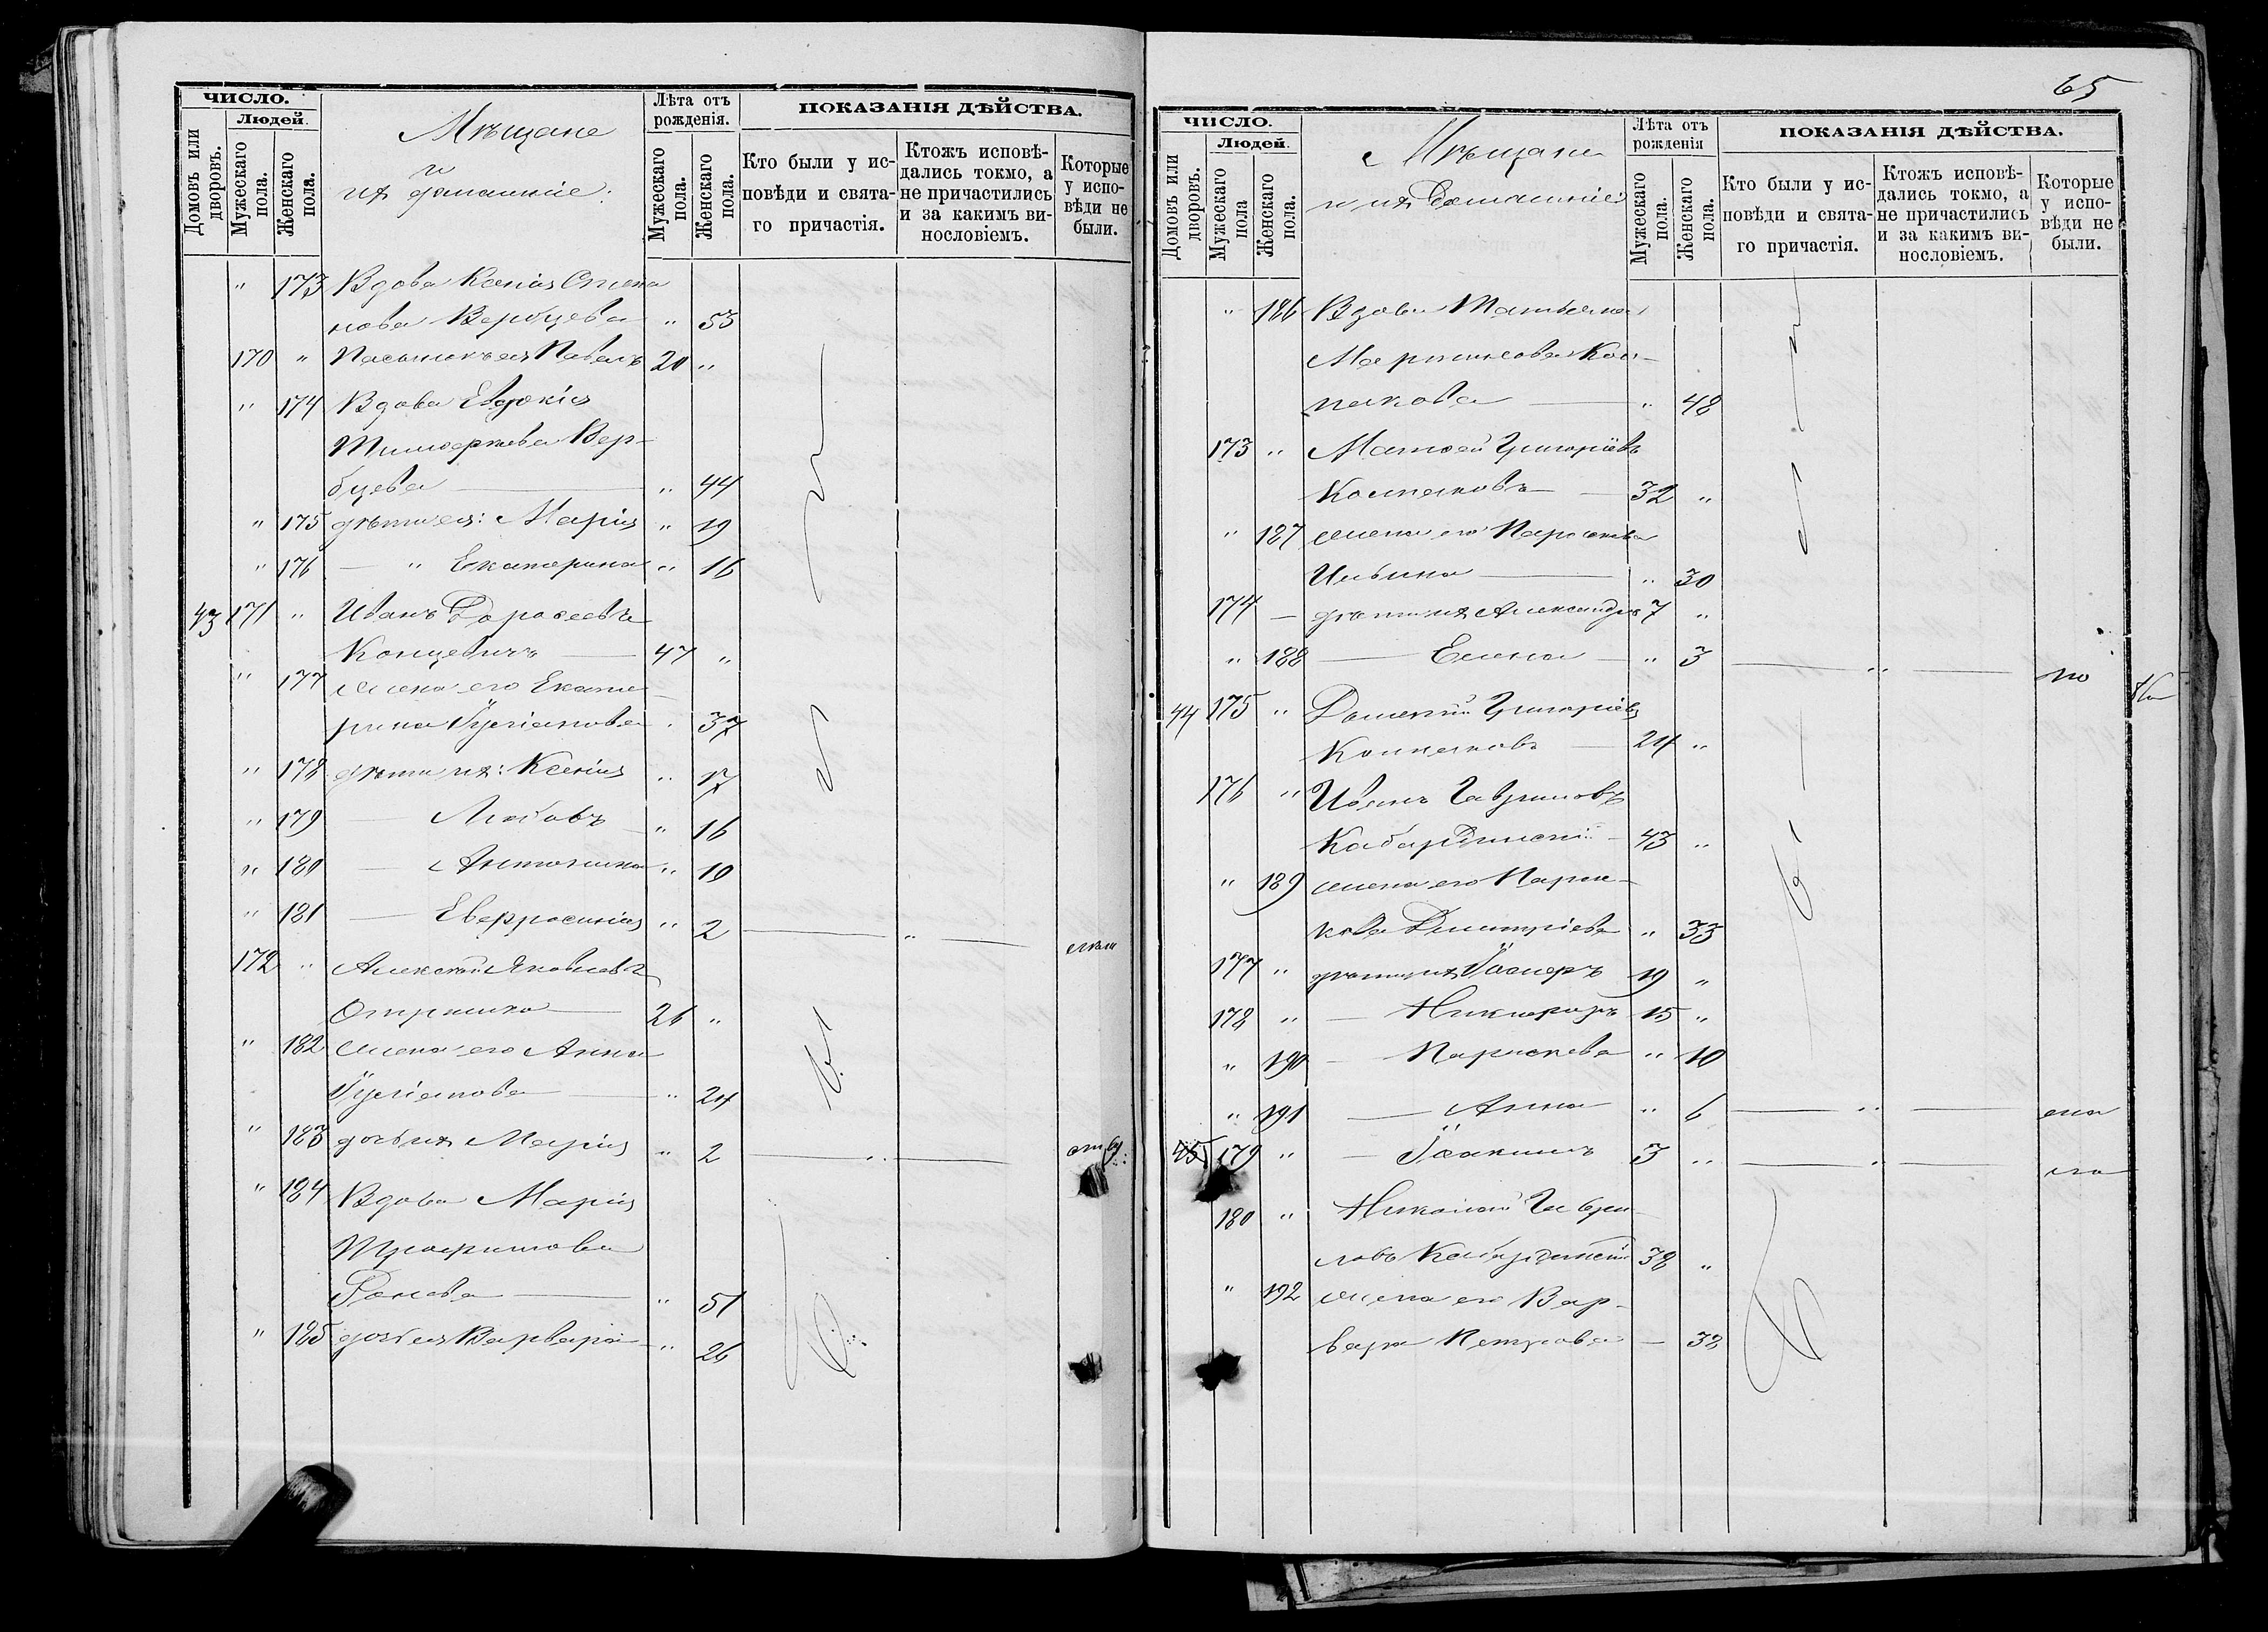 ЧИСЛО.
Людей.
Домовъ или дворовъ.
Мужескаго пола.
Женскаго пола.
Мѣщане
и
ихъ домашніе:
Лѣта отъ рожденія.
Мужескаго пола.
Женскаго пола.
ПОКАЗАНІЯ ДѢЙСТВА.
Кто были у ис-
повѣди и свята-
го причастія.
Ктожъ исповѣ-
дались токмо, а
не причастились
и за какимъ ви-
нословіемъ.
Которые
у испо-
вѣди не
были.
" 173 Вдова Ксенія Степа
нова Вербцева " 53
170 " Пасынокъ ея Павелъ 20 "
" 174 Вдова Евдокія
Тимоѳеева Вер-
бцева " 44
" 175 дѣти ея: Марія " 19
" 176 — " Екатерина " 16
43 171 " Иванъ Дороѳеевъ
Концевичъ 47 "
" 177 жена его Екате
рина Іуліанова " 37
" 178 дѣти ихъ: Ксенія " 17
" 179 — Любовь " 16
" 180 — Антонина " 10
" 181 — Евфросинія " 2 — " —
172 " Алексѣй Яковлевъ
26 "
" 182 жена его Анна
Іуліанова " 24
" 183 дочь ихъ Марія " 2 — " —
" 184 Вдова Марія
Трофимова
" 51
" 185 дочь ея Варвара " 26
65
ЧИСЛО.
Людей.
Домовъ или дворовъ.
Мужескаго пола
Женскаго пола.
Мѣщане
и ихъ домашніе
Лѣта отъ рожденія
Мужескаго пола.
Женскаго пола.
ПОКАЗАНІЯ ДѢЙСТВА.
Кто были у ис-
повѣди и свята-
го причастія.
Ктожъ исповѣ-
дались токмо, а
не причастились
и за какимъ ви-
нословіемъ.
Которые
у испо-
вѣди не
были.
" 186 Вдова Татьяна
Мартинова Кол-
пакова — " 48
173 " Матѳей Григоріевъ
Колпаковъ — 32 "
" 187 жена его Параскева
Ильина — " 30
174 — дѣти ихъ Александръ 7 "
" 188 — Елена — " 3 — " — по
44 175 " Григоріевъ
Колпаковъ — 24 "
176 " Иванъ Гавриловъ
Кабардинскій 43 "
" 189 жена его Парас-
кева Димитріева " 33
177 " дѣти ихъ 19 "
178 " — Никифоръ 15 "
" 190 — Параскева " 10
" 191 — Анна " 6 — " —
45 179 " — Іоакимъ 3 " — " —
180 " Николай Гаври-
ловъ Кабардинскій 38 "
" 192 жена его Вар-
вара Петрова — 38